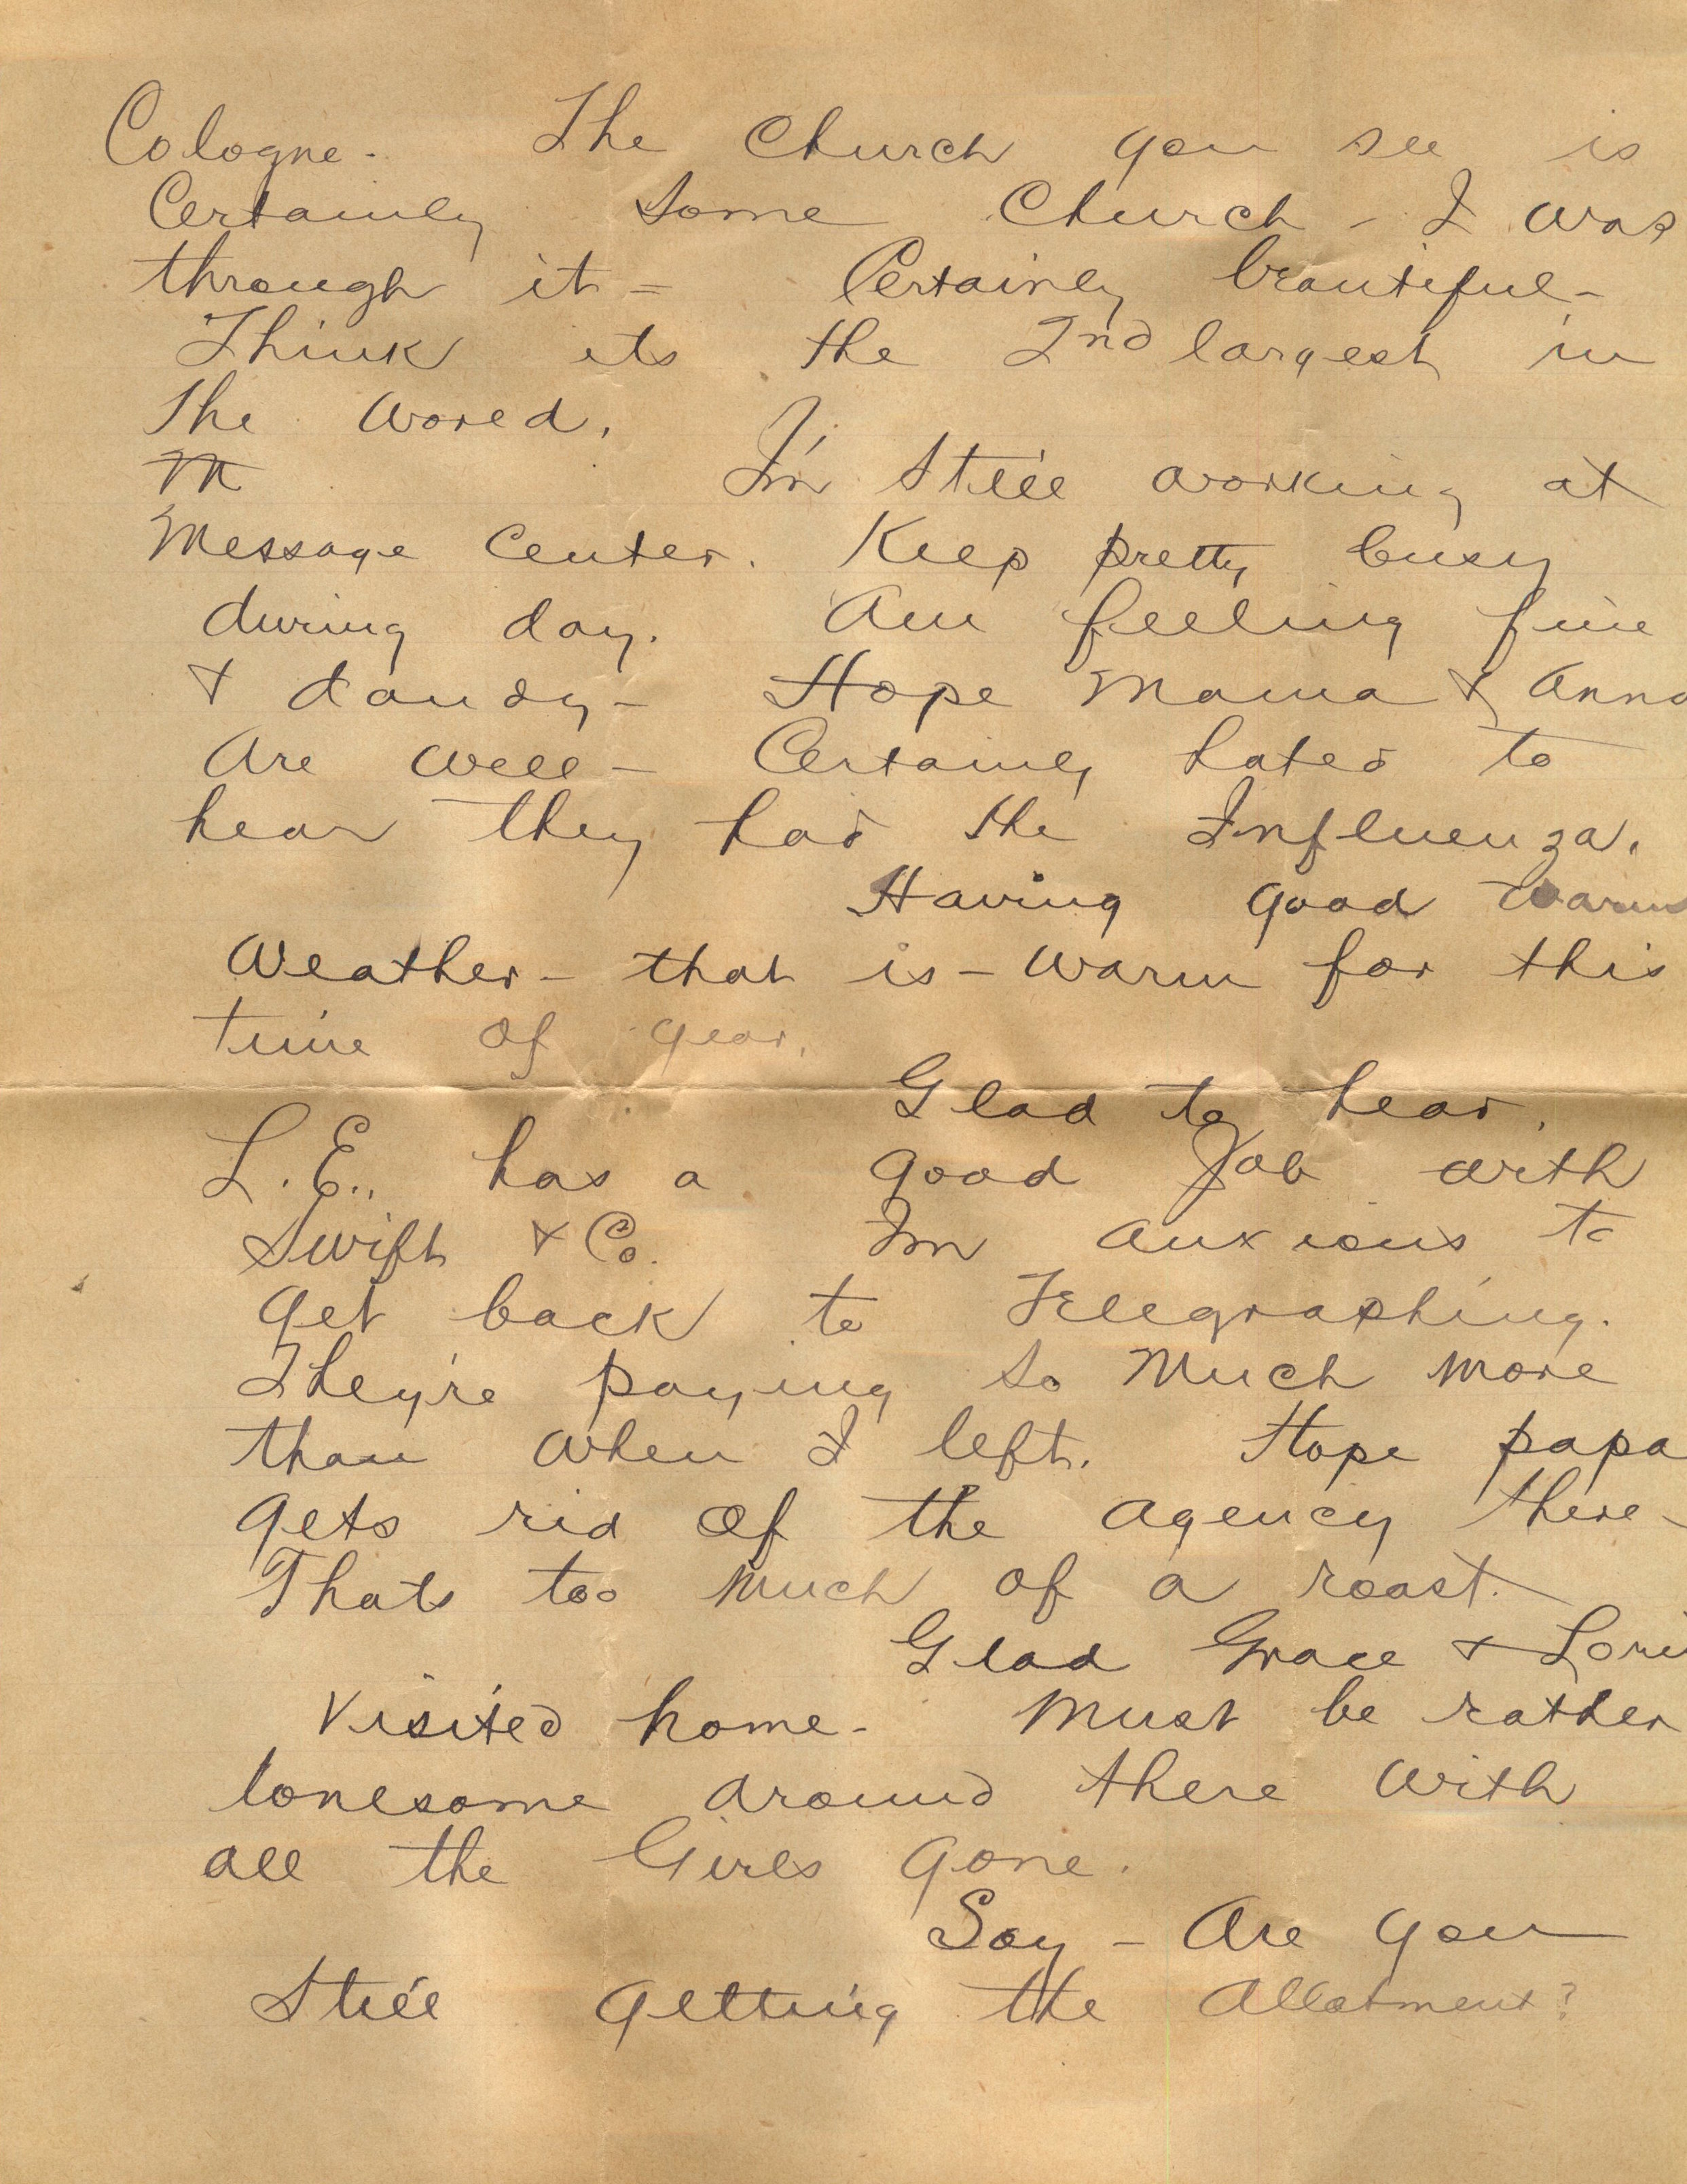 Cologne. The Church you see is
Certainly Some Church - I was
through it = Certainly beautiful -
Think its the 2nd largest in
the World.
M I'm Still working at
Message Center. Keep pretty busy
during day. Am feeling fine
& dandy - Hope Mama & Anna
Are well - Certainly hated to
hear they had the Influenza.
Having good warm
Weather - that is - warm for this
time of year.
Glad to hear,
L. E., has a good Job with
Swift & Co. Im anxious to
get back to Telegraphing.
They're paying so Much more
than when I left. Hope papa
gets rid of the agency there -
Thats too much of a roast.
Glad Grace &
Visited home - Must be rather
lonesome around there with
all the Girls gone.
Say - Are you
Still getting the Allotment?